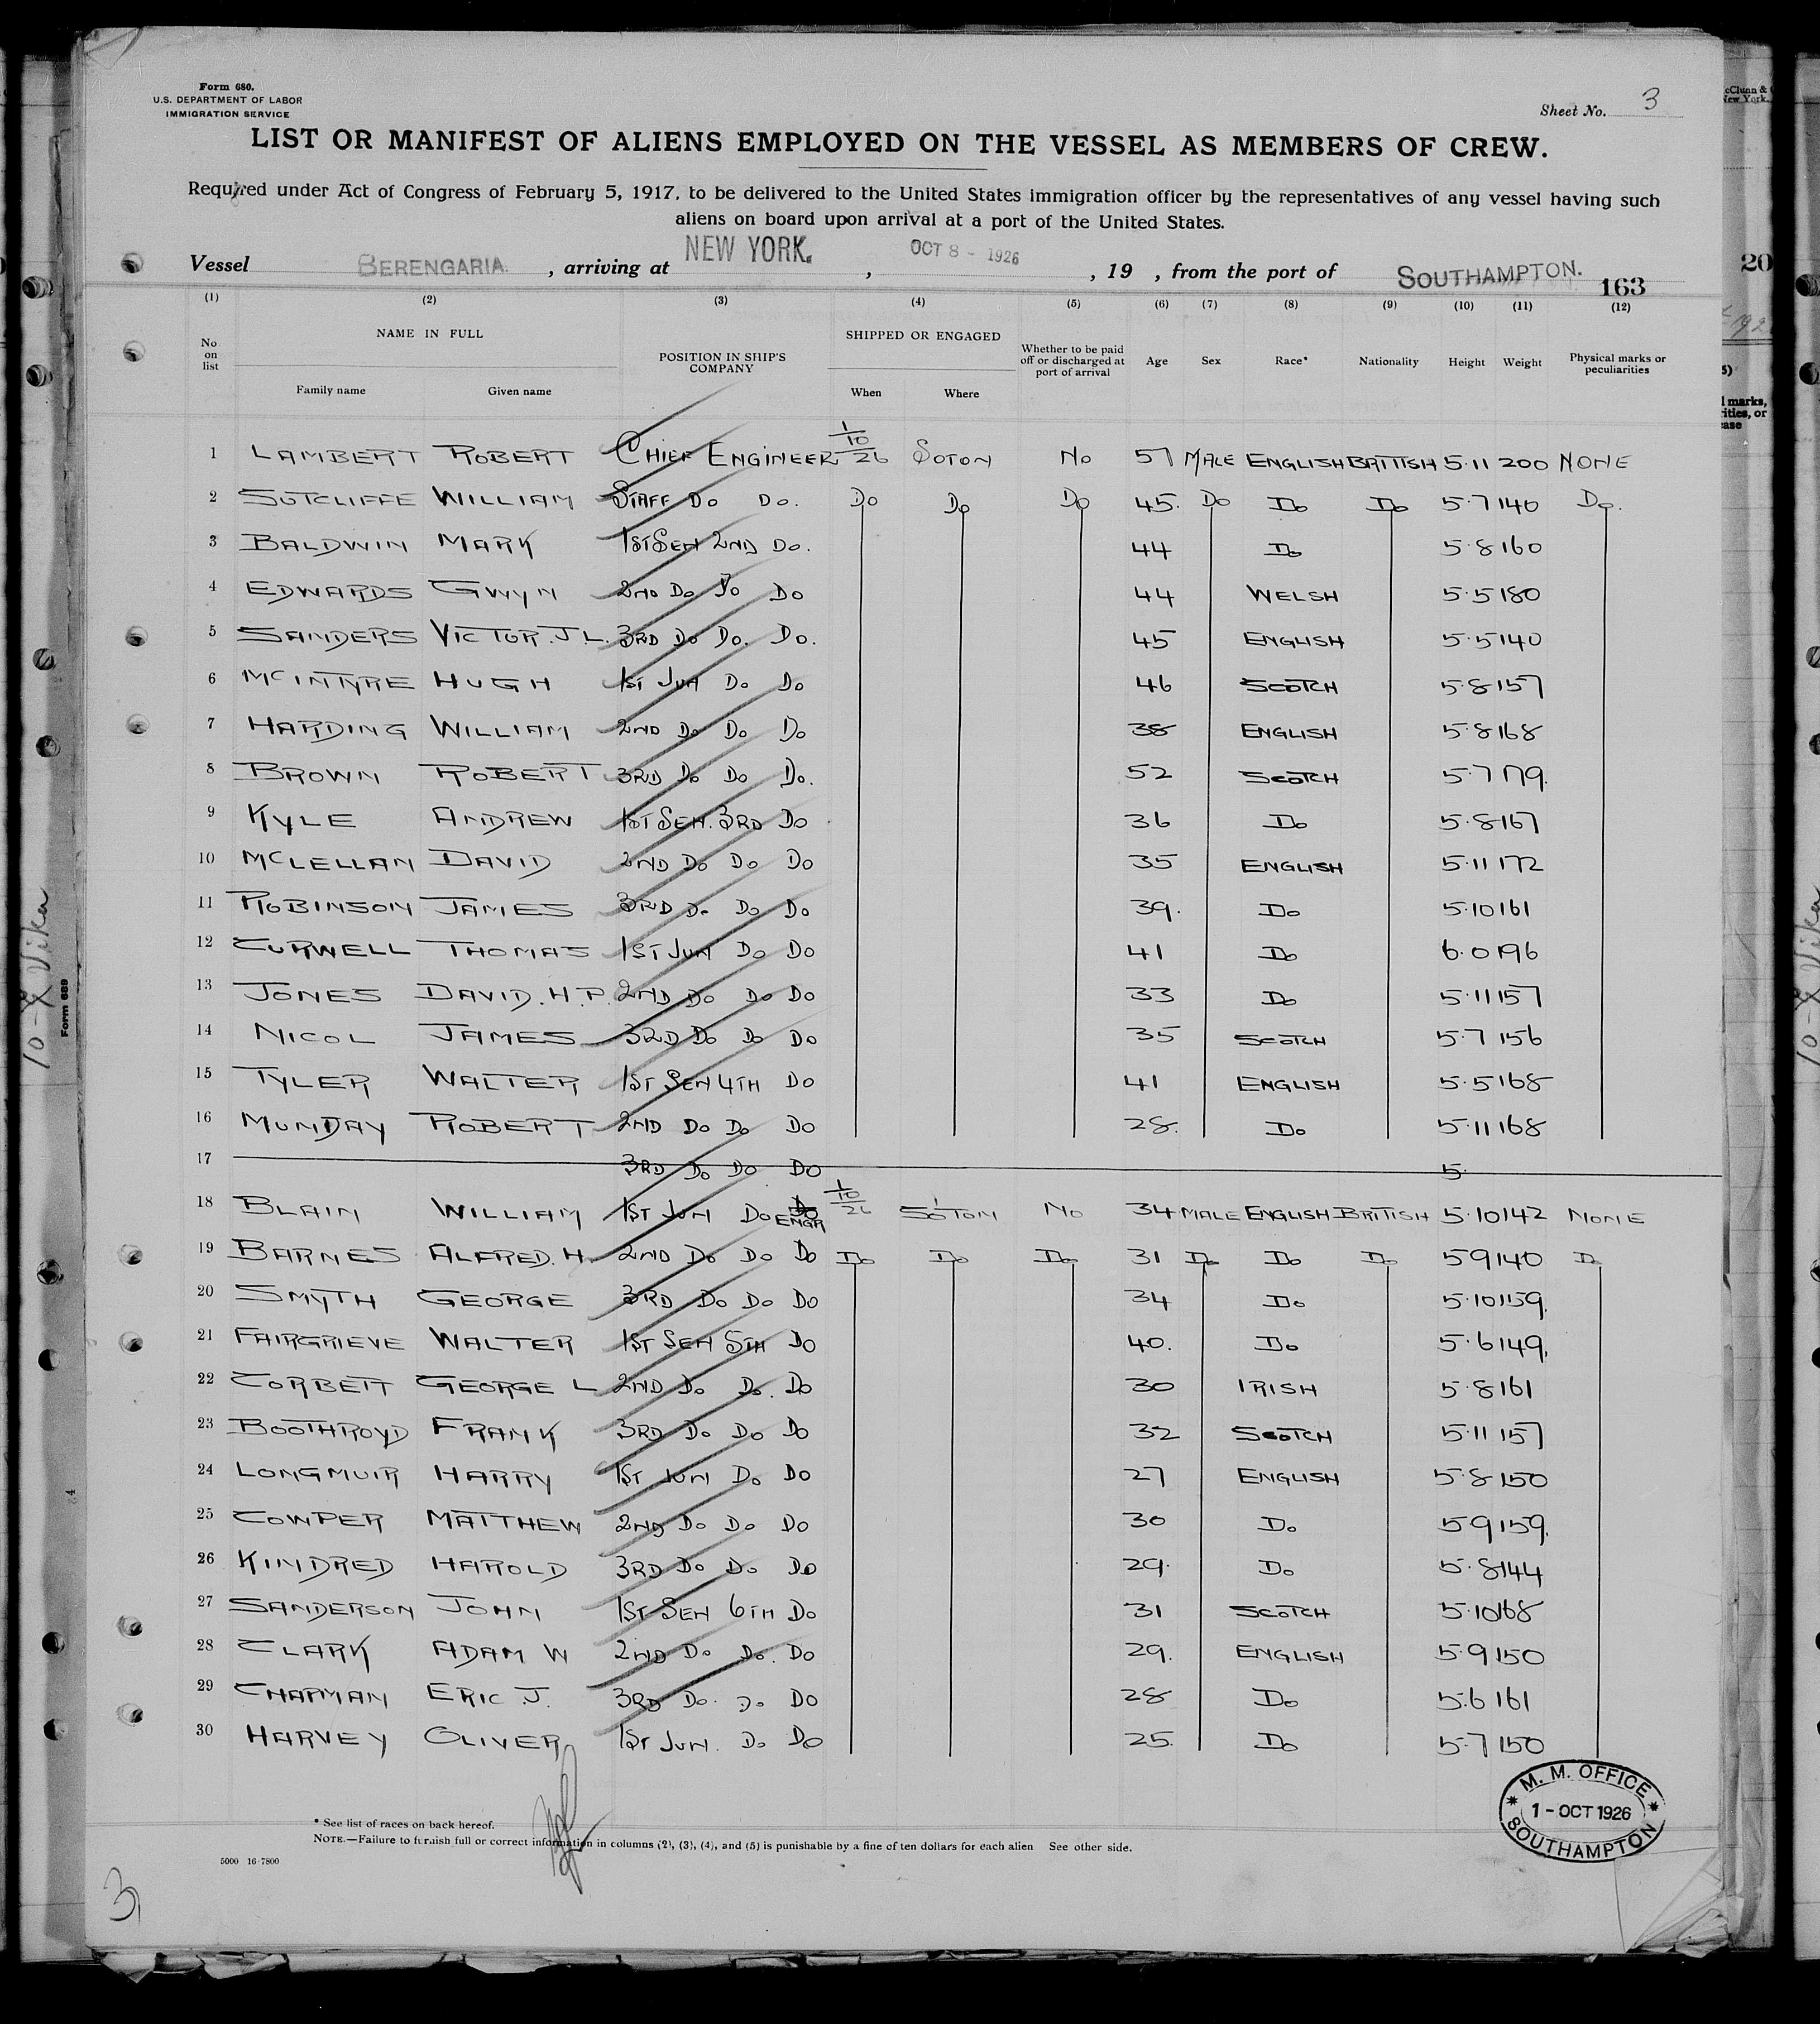 Form 680.
U.S. DEPARTMENT OF LABOR
IMMIGRATION SERVICE
Sheet No. 3
LIST OR MANIFEST OF ALIENS EMPLOYED ON THE VESSEL AS MEMBERS OF CREW.
Required under Act of Congress of February 5, 1917, to be delivered to the United States immigration officer by the representatives of any vessel having such
aliens on board upon arrival at a port of the United States.
Vessel BERENGARIA. , arriving at NEW YORK. , OCT 8 - 1926 , 19 , from the port of SOUTHAMPTON. 163
(1) (2) (3) (4) (5) (6) (7) (8) (9) (10) (11) (12)
No. on list NAME IN FULL Family name Given name POSITION IN SHIP'S COMPANY SHIPPED OR ENGAGED When Where Whether to be paid off or discharged at port of arrival Age Sex Race* Nationality Height Weight Physical marks or peculiarities
1 LAMBERT ROBERT CHIEF ENGINEER 1/10/26 SOTON NO 57 MALE ENGLISH BRITISH 5.11 200 NONE
2 SUTCLIFFE WILLIAM STAFF DO DO. DO DO DO 45. DO DO DO 5.7 140 DO.
3 BALDWIN MARK 1ST SEN 2ND DO. 44 DO 5.8 160
4 EDWARDS GWYN 2ND DO DO DO 44 WELSH 5.5 180
5 SANDERS VICTOR.J.L. 3RD DO DO. DO. 45 ENGLISH 5.5 140
6 MCINTYRE HUGH 1ST JUN DO DO 46 SCOTCH 5.8 157
7 HARDING WILLIAM 2ND DO DO DO 38 ENGLISH 5.8 168
8 BROWN ROBERT 3RD DO DO DO. 52 SCOTCH 5.7 179.
9 KYLE ANDREW 1ST SEN. 3RD DO 36 DO 5.8 167
10 MCLELLAN DAVID 2ND DO DO DO 35 ENGLISH 5.11 172
11 ROBINSON JAMES 3RD DO DO DO 39. DO 5.10 161
12 CURWELL THOMAS 1ST JUN DO DO 41 DO 6.0 196
13 JONES DAVID.H.P. 2ND DO DO DO 33 DO 5.11 157
14 NICOL JAMES 3RD DO DO DO 35 SCOTCH 5.7 156
15 TYLER WALTER 1ST SEN 4TH DO 41 ENGLISH 5.5 168
16 MUNDAY ROBERT 2ND DO DO DO 28. DO 5.11 168
17 3RD DO DO DO 5.
18 BLAIN WILLIAM 1ST JUN DO DO ENGR 1/10/26 SOTON NO 34 MALE ENGLISH BRITISH 5.10 142 NONE
19 BARNES ALFRED.H. 2ND DO DO DO DO DO DO 31 DO DO DO 5 9 140 DO
20 SMYTH GEORGE 3RD DO DO DO 34 DO 5.10 159.
21 FAIRGRIEVE WALTER 1ST SEN 5TH DO 40. DO 5.6 149.
22 CORBETT GEORGE L 2ND DO DO. DO 30 IRISH 5.8 161
23 BOOTHROYD FRANK 3RD DO DO DO 32 SCOTCH 5.11 157
24 LONGMUIR HARRY 1ST JUN DO DO 27 ENGLISH 5.8 150
25 COWPER MATTHEW 2ND DO DO DO 30 DO 5.9 159.
26 KINDRED HAROLD 3RD DO DO DO 29. DO 5.8 144
27 SANDERSON JOHN 1ST SEN 6TH DO 31 SCOTCH 5.10 168
28 CLARK ADAM W 2ND DO DO. DO 29. ENGLISH 5.9 150
29 CHAPMAN ERIC J. 3RD DO. DO DO 28 DO 5.6 161
30 HARVEY OLIVER 1ST JUN. DO DO 25. DO 5.7 150
M. M. OFFICE
1 - OCT 1926
SOUTHAMPTON
* See list of races on back hereof.
NOTE.—Failure to furnish full or correct information in columns (2), (3), (4), and (5) is punishable by a fine of ten dollars for each alien See other side.
5000 16-7800
3
Form 689
20